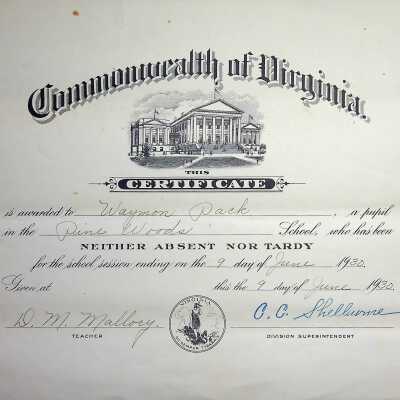 Commonwealth of Virginia.
THIS
CERTIFICATE
is awarded to Waymon Pack, a pupil
in the Pine Woods School, who has been
NEITHER ABSENT NOR TARDY
for the school session ending on the 9 day of June 1930.
Given at this the 9 day of June 1930.
D. M. Mallory. C. C. Shelburne
TEACHER DIVISION SUPERINTENDENT
VIRGINIA
SIC SEMPER TYRANNIS